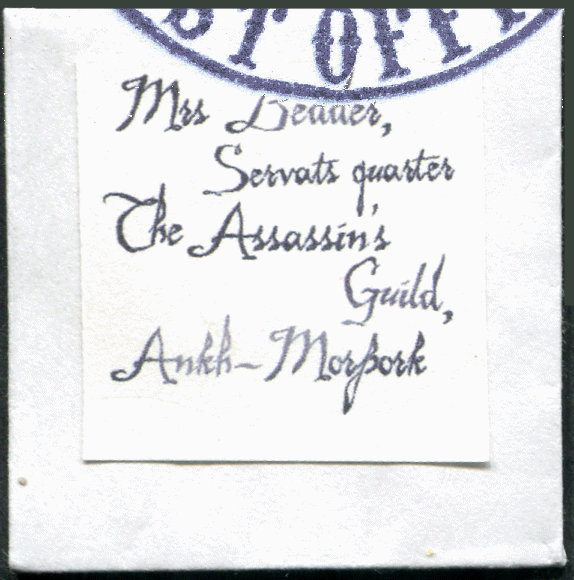 ST OFFI
Mrs
Servats quarter
The Assassin's
Guild,
Ankh-Morpork